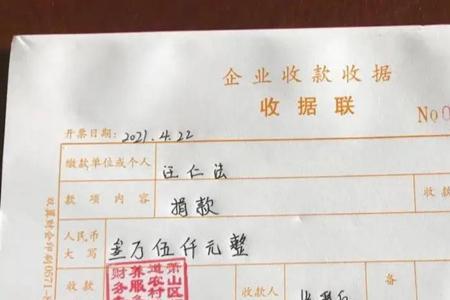 企业收款收据
收据联
No0
开票日期: 2021.4.22
缴款单位或个人 汪仁法
款项内容 捐款 收款
人民币大写 叁万伍仟元整
收款 收款人 备
萧山区
道农村
养服务
财务专